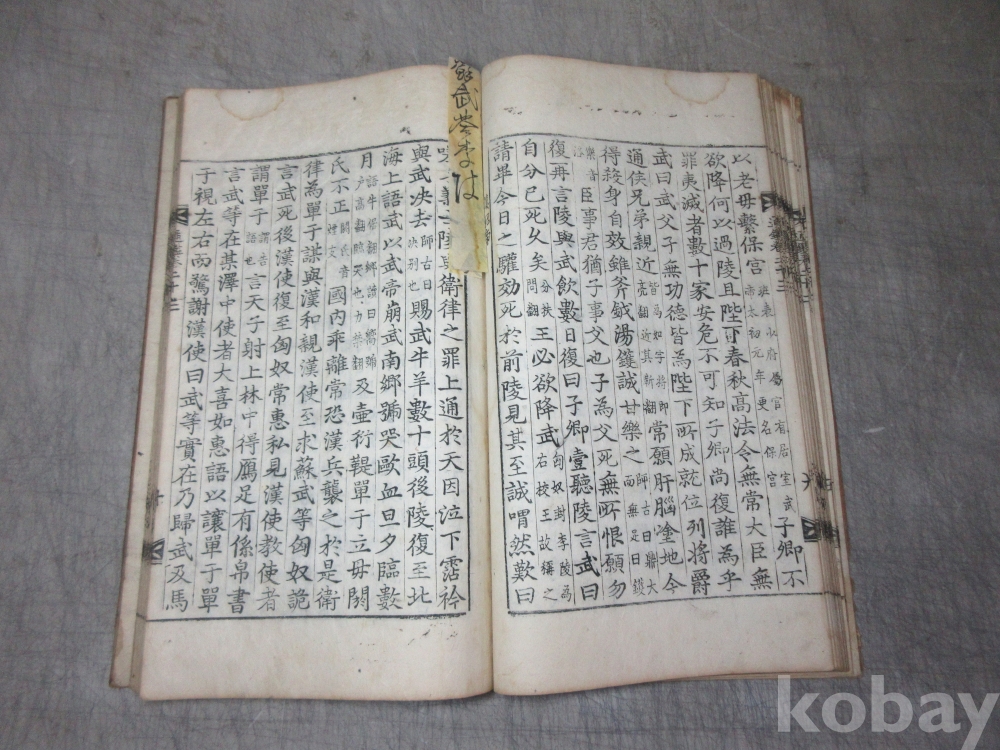 以老母繫保宮 班表少府屬官有居室武帝太初元年更名保宮 子卿不
欲降何以過陵且陛下春秋高法令無常大臣無
罪夷滅者數十家安危不可知子卿尚復誰為乎
武曰武父子無功德皆為陛下所成就位列將爵
通侯兄弟親近常願肝腦塗地今
得殺身自效雖斧鉞湯鑊誠甘樂之
臣事君猶子事父也子為父死無所恨願勿
復再言陵與武飲數日復曰子卿壹聽陵言武曰
自分已死久矣王必欲降武 匈奴封李陵為右校王故稱之
請畢今日之驩効死於前陵見其至誠喟然歎曰
陵與衛律之罪上通於天因泣下霑衿
與武决去 師古曰决別也 賜武牛羊數十頭後陵復至北
海上語武以武帝崩武南鄉號哭歐血旦夕臨數
月及壺衍鞮單于立母閼
氏不正國內乖離常恐漢兵襲之於是衛
律為單于謀與漢和親漢使至求蘇武等匈奴詭
言武死後漢使復至匈奴常惠私見漢使教使者
謂單于言天子射上林中得鴈足有係帛書
言武等在某澤中使者大喜如惠語以讓單于單
于視左右而驚謝漢使曰武等實在乃歸武及馬
kobay